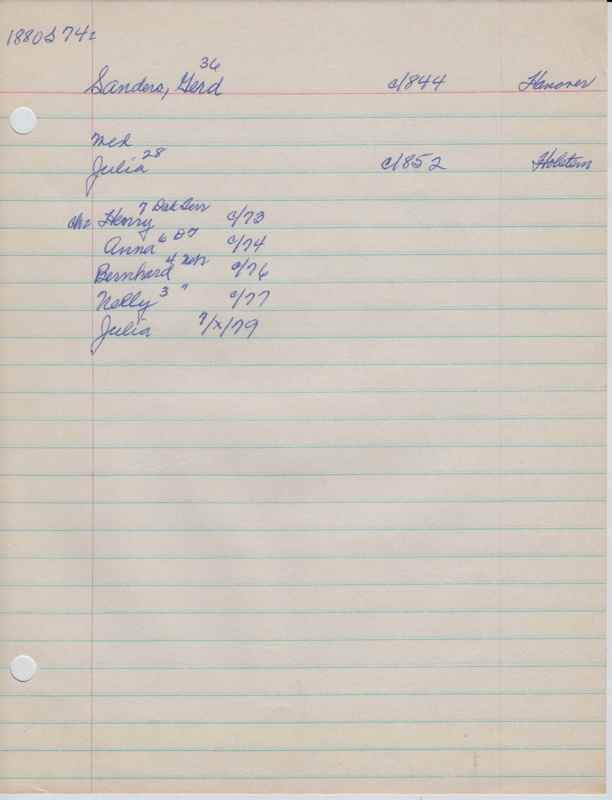 1880 S 742
Sanders, Gerd 36 c/844 Hanover
Med
Julia 28 c/1852 Holstein
chr Henry 7 Dak Terr c/73
Anna 6 DT c/74
Bernhard 4 c/76
Nelly 3 " c/77
Julia 7/x/79